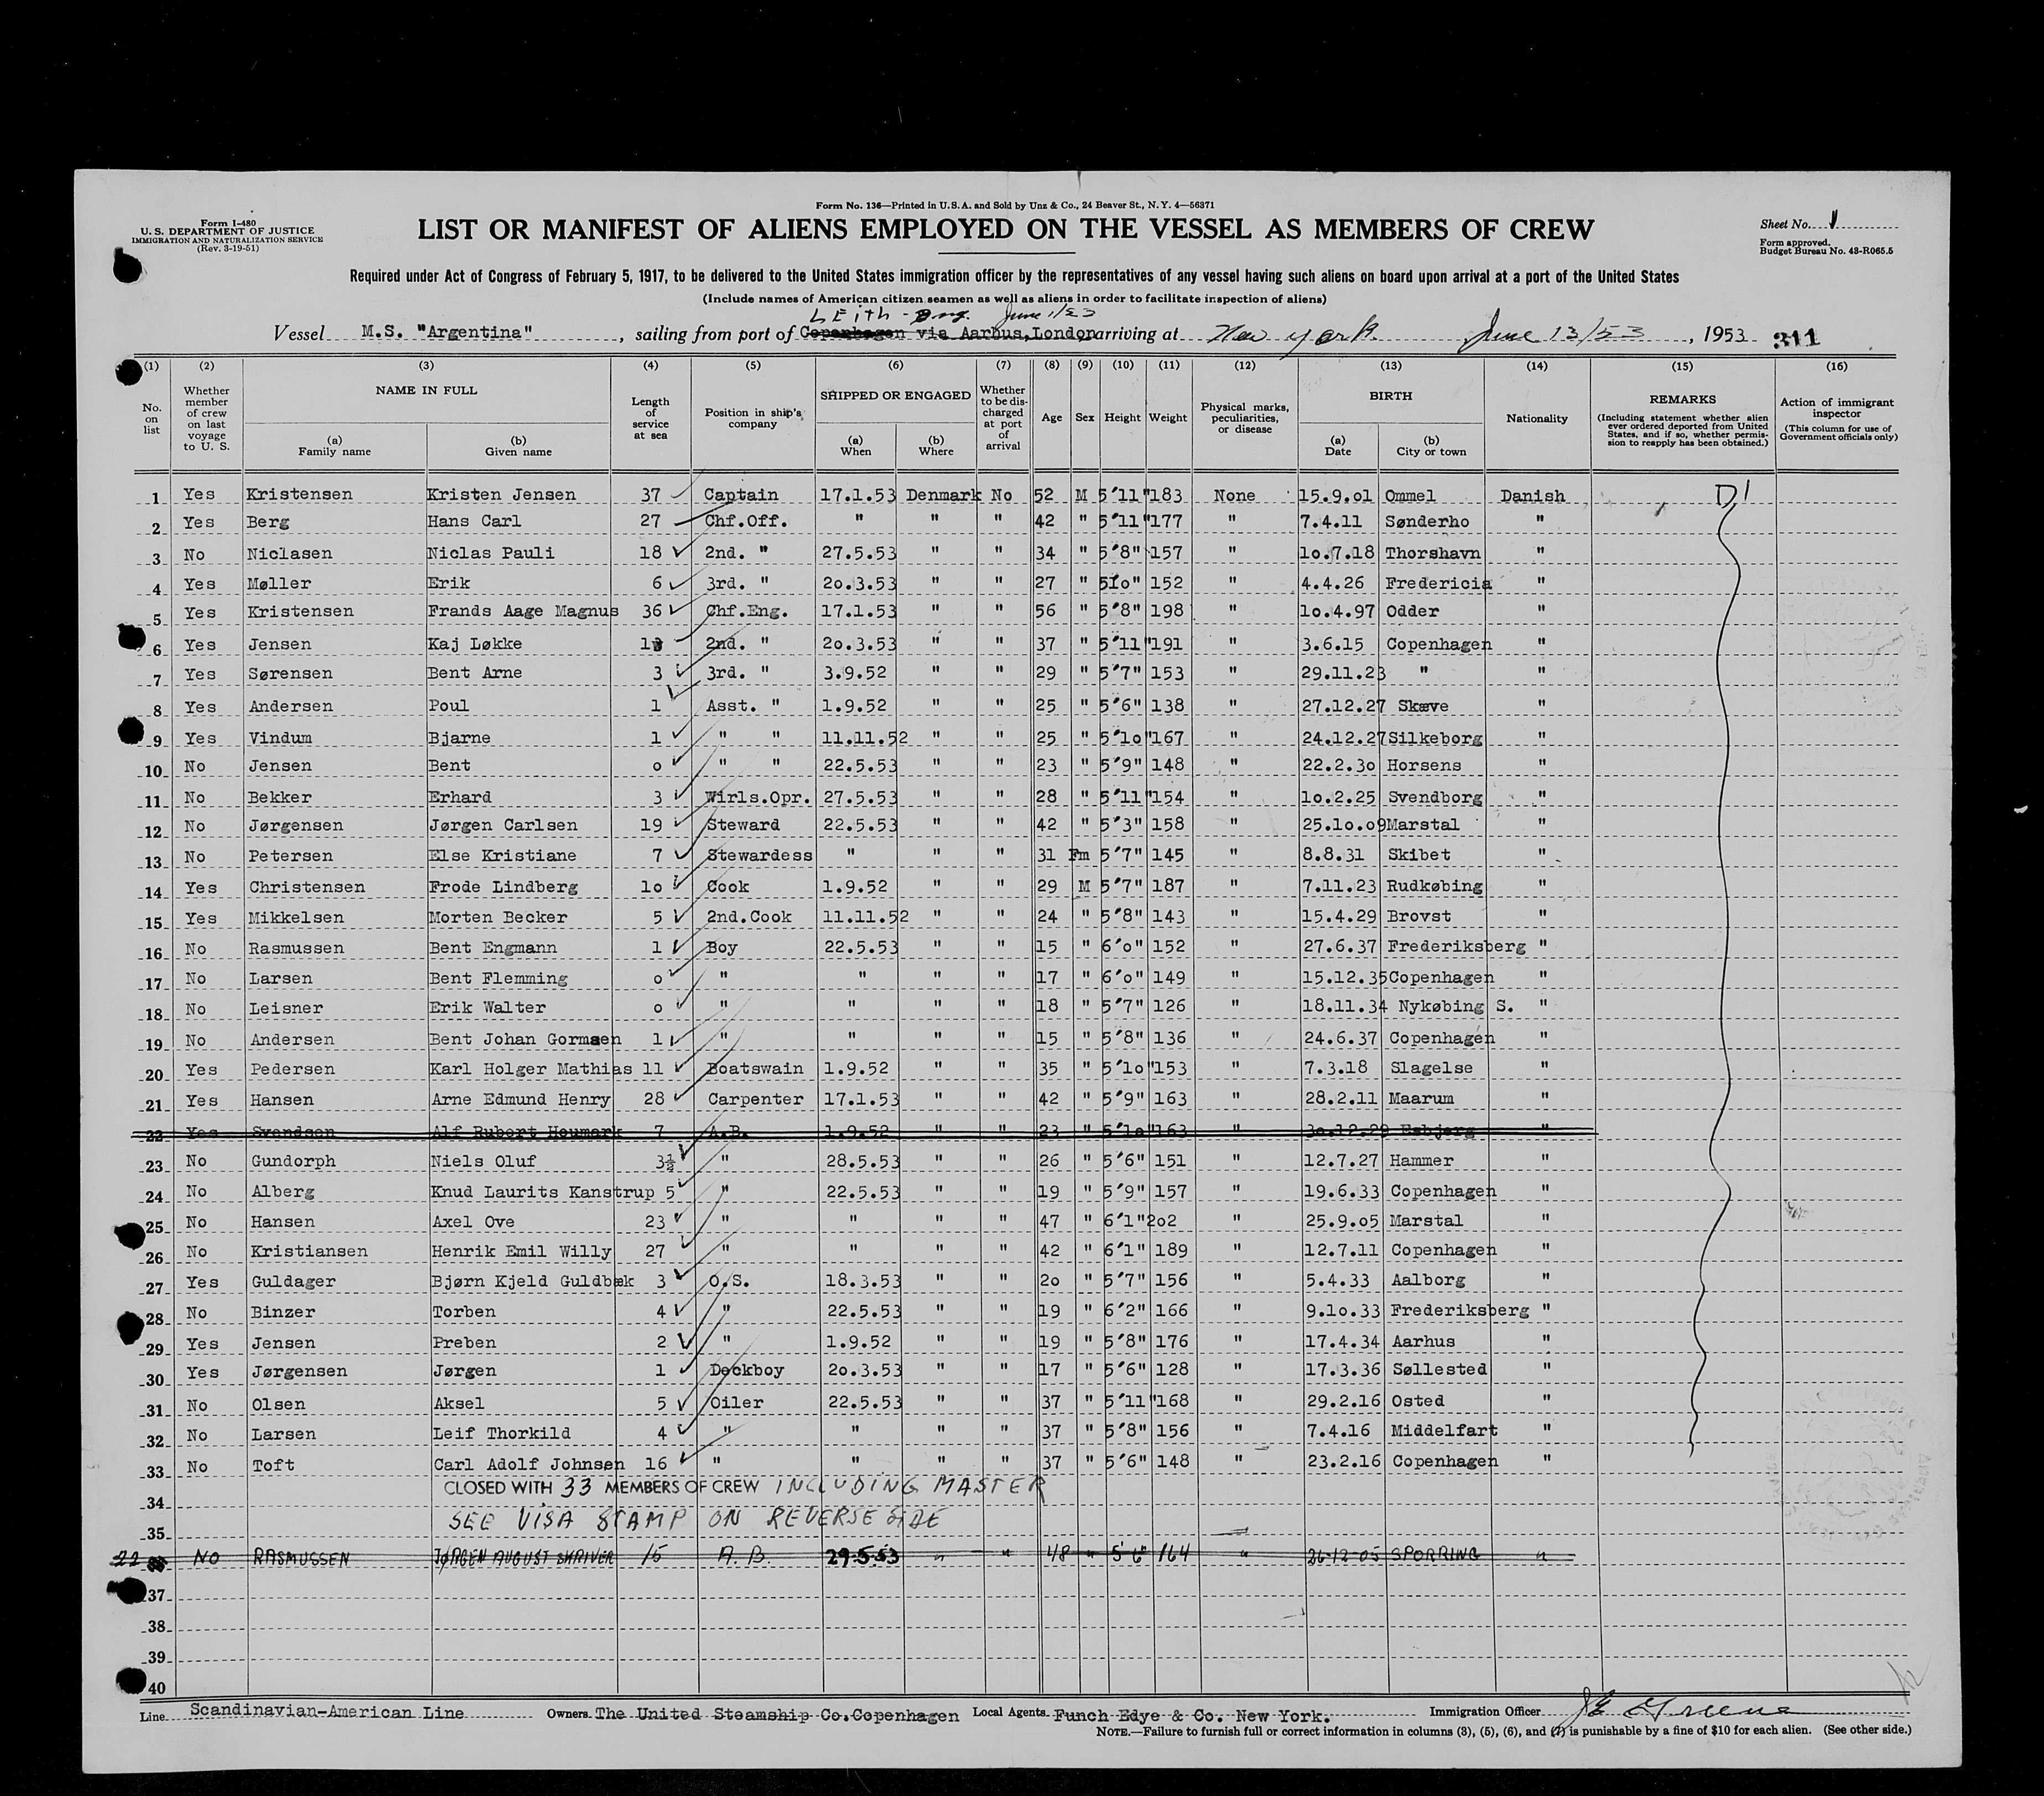 Form No. 136—Printed in U.S.A. and Sold by Unz & Co., 24 Beaver St., N.Y. 4—56371
Form I-480
U. S. DEPARTMENT OF JUSTICE
IMMIGRATION AND NATURALIZATION SERVICE
(Rev. 3-19-51)
LIST OR MANIFEST OF ALIENS EMPLOYED ON THE VESSEL AS MEMBERS OF CREW
Sheet No. 1
Form approved.
Budget Bureau No. 43-R065.5
Required under Act of Congress of February 5, 1917, to be delivered to the United States immigration officer by the representatives of any vessel having such aliens on board upon arrival at a port of the United States
(Include names of American citizen seamen as well as aliens in order to facilitate inspection of aliens)
LEITH - June 1/53
Vessel M.S. "Argentina", sailing from port of Copenhagen via Aarhus, London arriving at New York June 13/53, 1953 311
(1) (2) (3) (4) (5) (6) (7) (8) (9) (10) (11) (12) (13) (14) (15) (16)
No. on list
Whether member of crew on last voyage to U. S.
NAME IN FULL
(a) Family name
(b) Given name
Length of service at sea
Position in ship's company
SHIPPED OR ENGAGED
(a) When
(b) Where
Whether to be discharged at port of arrival
Age
Sex
Height
Weight
Physical marks, peculiarities, or disease
BIRTH
(a) Date
(b) City or town
Nationality
REMARKS
(Including statement whether alien ever ordered deported from United States, and if so, whether permission to reapply has been obtained.)
Action of immigrant inspector
(This column for use of Government officials only)
1 Yes Kristensen Kristen Jensen 37 Captain 17.1.53 Denmark No 52 M 5'11" 183 None 15.9.01 Ommel Danish D1
2 Yes Berg Hans Carl 27 Chf.Off. " " " 42 " 5'11" 177 " 7.4.11 Sønderho "
3 No Niclasen Niclas Pauli 18 2nd. " 27.5.53 " " 34 " 5'8" 157 " 10.7.18 Thorshavn "
4 Yes Møller Erik 6 3rd. " 20.3.53 " " 27 " 510" 152 " 4.4.26 Fredericia "
5 Yes Kristensen Frands Aage Magnus 36 Chf.Eng. 17.1.53 " " 56 " 5'8" 198 " 10.4.97 Odder "
6 Yes Jensen Kaj Løkke 2nd. " 20.3.53 " " 37 " 5'11" 191 " 3.6.15 Copenhagen "
7 Yes Sørensen Bent Arne 3 3rd. " 3.9.52 " " 29 " 5'7" 153 " 29.11.23 " "
8 Yes Andersen Poul 1 Asst. " 1.9.52 " " 25 " 5'6" 138 " 27.12.27 Skæve "
9 Yes Vindum Bjarne 1 " " 11.11.52 " " 25 " 5'10" 167 " 24.12.27 Silkeborg "
10 No Jensen Bent 0 " " 22.5.53 " " 23 " 5'9" 148 " 22.2.30 Horsens "
11 No Bekker Erhard 3 Wirls.Opr. 27.5.53 " " 28 " 5'11" 154 " 10.2.25 Svendborg "
12 No Jørgensen Jørgen Carlsen 19 Steward 22.5.53 " " 42 " 5'3" 158 " 25.10.09 Marstal "
13 No Petersen Else Kristiane 7 Stewardess " " " 31 Fm 5'7" 145 " 8.8.31 Skibet "
14 Yes Christensen Frode Lindberg 10 Cook 1.9.52 " " 29 M 5'7" 187 " 7.11.23 Rudkøbing "
15 Yes Mikkelsen Morten Becker 5 2nd.Cook 11.11.52 " " 24 " 5'8" 143 " 15.4.29 Brovst "
16 No Rasmussen Bent Engmann 1 Boy 22.5.53 " " 15 " 6'0" 152 " 27.6.37 Frederiksberg "
17 No Larsen Bent Flemming 0 " " " " 17 " 6'0" 149 " 15.12.35 Copenhagen "
18 No Leisner Erik Walter 0 " " " " 18 " 5'7" 126 " 18.11.34 Nykøbing S. "
19 No Andersen Bent Johan Gormsen 1 " " " " 15 " 5'8" 136 " 24.6.37 Copenhagen "
20 Yes Pedersen Karl Holger Mathias 11 Boatswain 1.9.52 " " 35 " 5'10" 153 " 7.3.18 Slagelse "
21 Yes Hansen Arne Edmund Henry 28 Carpenter 17.1.53 " " 42 " 5'9" 163 " 28.2.11 Maarum "
22 Yes Svendsen Alf Rubert Houmark 7 A.B. 1.9.52 " " 23 " 5'10" 163 " 30.12.29 Esbjerg "
23 No Gundorph Niels Oluf 3½ " 28.5.53 " " 26 " 5'6" 151 " 12.7.27 Hammer "
24 No Alberg Knud Laurits Kanstrup 5 " 22.5.53 " " 19 " 5'9" 157 " 19.6.33 Copenhagen "
25 No Hansen Axel Ove 23 " " " " 47 " 6'1" 202 " 25.9.05 Marstal "
26 No Kristiansen Henrik Emil Willy 27 " " " " 42 " 6'1" 189 " 12.7.11 Copenhagen "
27 Yes Guldager Bjørn Kjeld Guldbæk 3 O.S. 18.3.53 " " 20 " 5'7" 156 " 5.4.33 Aalborg "
28 No Binzer Torben 4 " 22.5.53 " " 19 " 6'2" 166 " 9.10.33 Frederiksberg "
29 Yes Jensen Preben 2 " 1.9.52 " " 19 " 5'8" 176 " 17.4.34 Aarhus "
30 Yes Jørgensen Jørgen 1 Deckboy 20.3.53 " " 17 " 5'6" 128 " 17.3.36 Søllested "
31 No Olsen Aksel 5 Oiler 22.5.53 " " 37 " 5'11" 168 " 29.2.16 Osted "
32 No Larsen Leif Thorkild 4 " " " " 37 " 5'8" 156 " 7.4.16 Middelfart "
33 No Toft Carl Adolf Johnsen 16 " " " " 37 " 5'6" 148 " 23.2.16 Copenhagen "
CLOSED WITH 33 MEMBERS OF CREW INCLUDING MASTER
34
SEE VISA STAMP ON REVERSE SIDE
35
22 NO RASMUSSEN JØRGEN AUGUST SKRIVER 15 A.B. 29.5.53 " " 48 " 5'6" 164 " 26-12-05 SPORRING "
37
38
39
40
Line Scandinavian-American Line Owners The United Steamship Co.Copenhagen Local Agents Funch Edye & Co. New York. Immigration Officer Greene
NOTE.—Failure to furnish full or correct information in columns (3), (5), (6), and (7) is punishable by a fine of $10 for each alien. (See other side.)